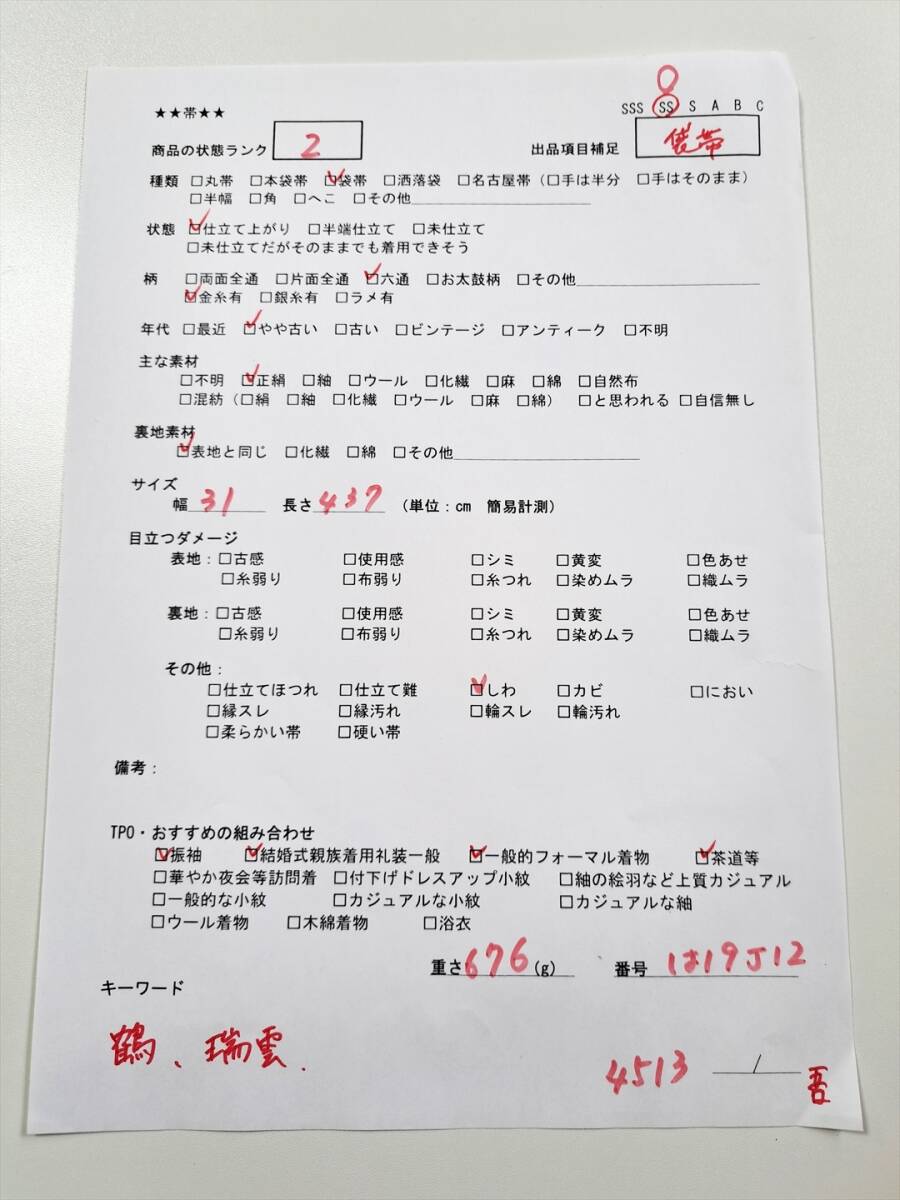 SSS SS S A B C
★★帯★★
商品の状態ランク 2 出品項目補足 袋帯
種類 □丸帯 □本袋帯 ☑袋帯 □洒落袋 □名古屋帯（□手は半分 □手はそのまま）
□半幅 □角 □へこ □その他
状態 ☑仕立て上がり □半端仕立て □未仕立て
□未仕立てだがそのままでも着用できそう
柄 □両面全通 □片面全通 ☑六通 □お太鼓柄 □その他
☑金糸有 □銀糸有 □ラメ有
年代 □最近 ☑やや古い □古い □ビンテージ □アンティーク □不明
主な素材
□不明 ☑正絹 □紬 □ウール □化繊 □麻 □綿 □自然布
□混紡（□絹 □紬 □化繊 □ウール □麻 □綿） □と思われる □自信無し
裏地素材
☑表地と同じ □化繊 □綿 □その他
サイズ
幅 31 長さ 437 （単位：cm 簡易計測）
目立つダメージ
表地：□古感 □使用感 □シミ □黄変 □色あせ
□糸弱り □布弱り □糸つれ □染めムラ □織ムラ
裏地：□古感 □使用感 □シミ □黄変 □色あせ
□糸弱り □布弱り □糸つれ □染めムラ □織ムラ
その他：
□仕立てほつれ □仕立て難 ☑しわ □カビ □におい
□縁スレ □縁汚れ □輪スレ □輪汚れ
□柔らかい帯 □硬い帯
備考：
TPO・おすすめの組み合わせ
☑振袖 ☑結婚式親族着用礼装一般 ☑一般的フォーマル着物 ☑茶道等
□華やか夜会等訪問着 □付下げドレスアップ小紋 □紬の絵羽など上質カジュアル
□一般的な小紋 □カジュアルな小紋 □カジュアルな紬
□ウール着物 □木綿着物 □浴衣
重さ 676 (g) 番号 1は19J12
キーワード
鶴、瑞雲.
4513 / 吾